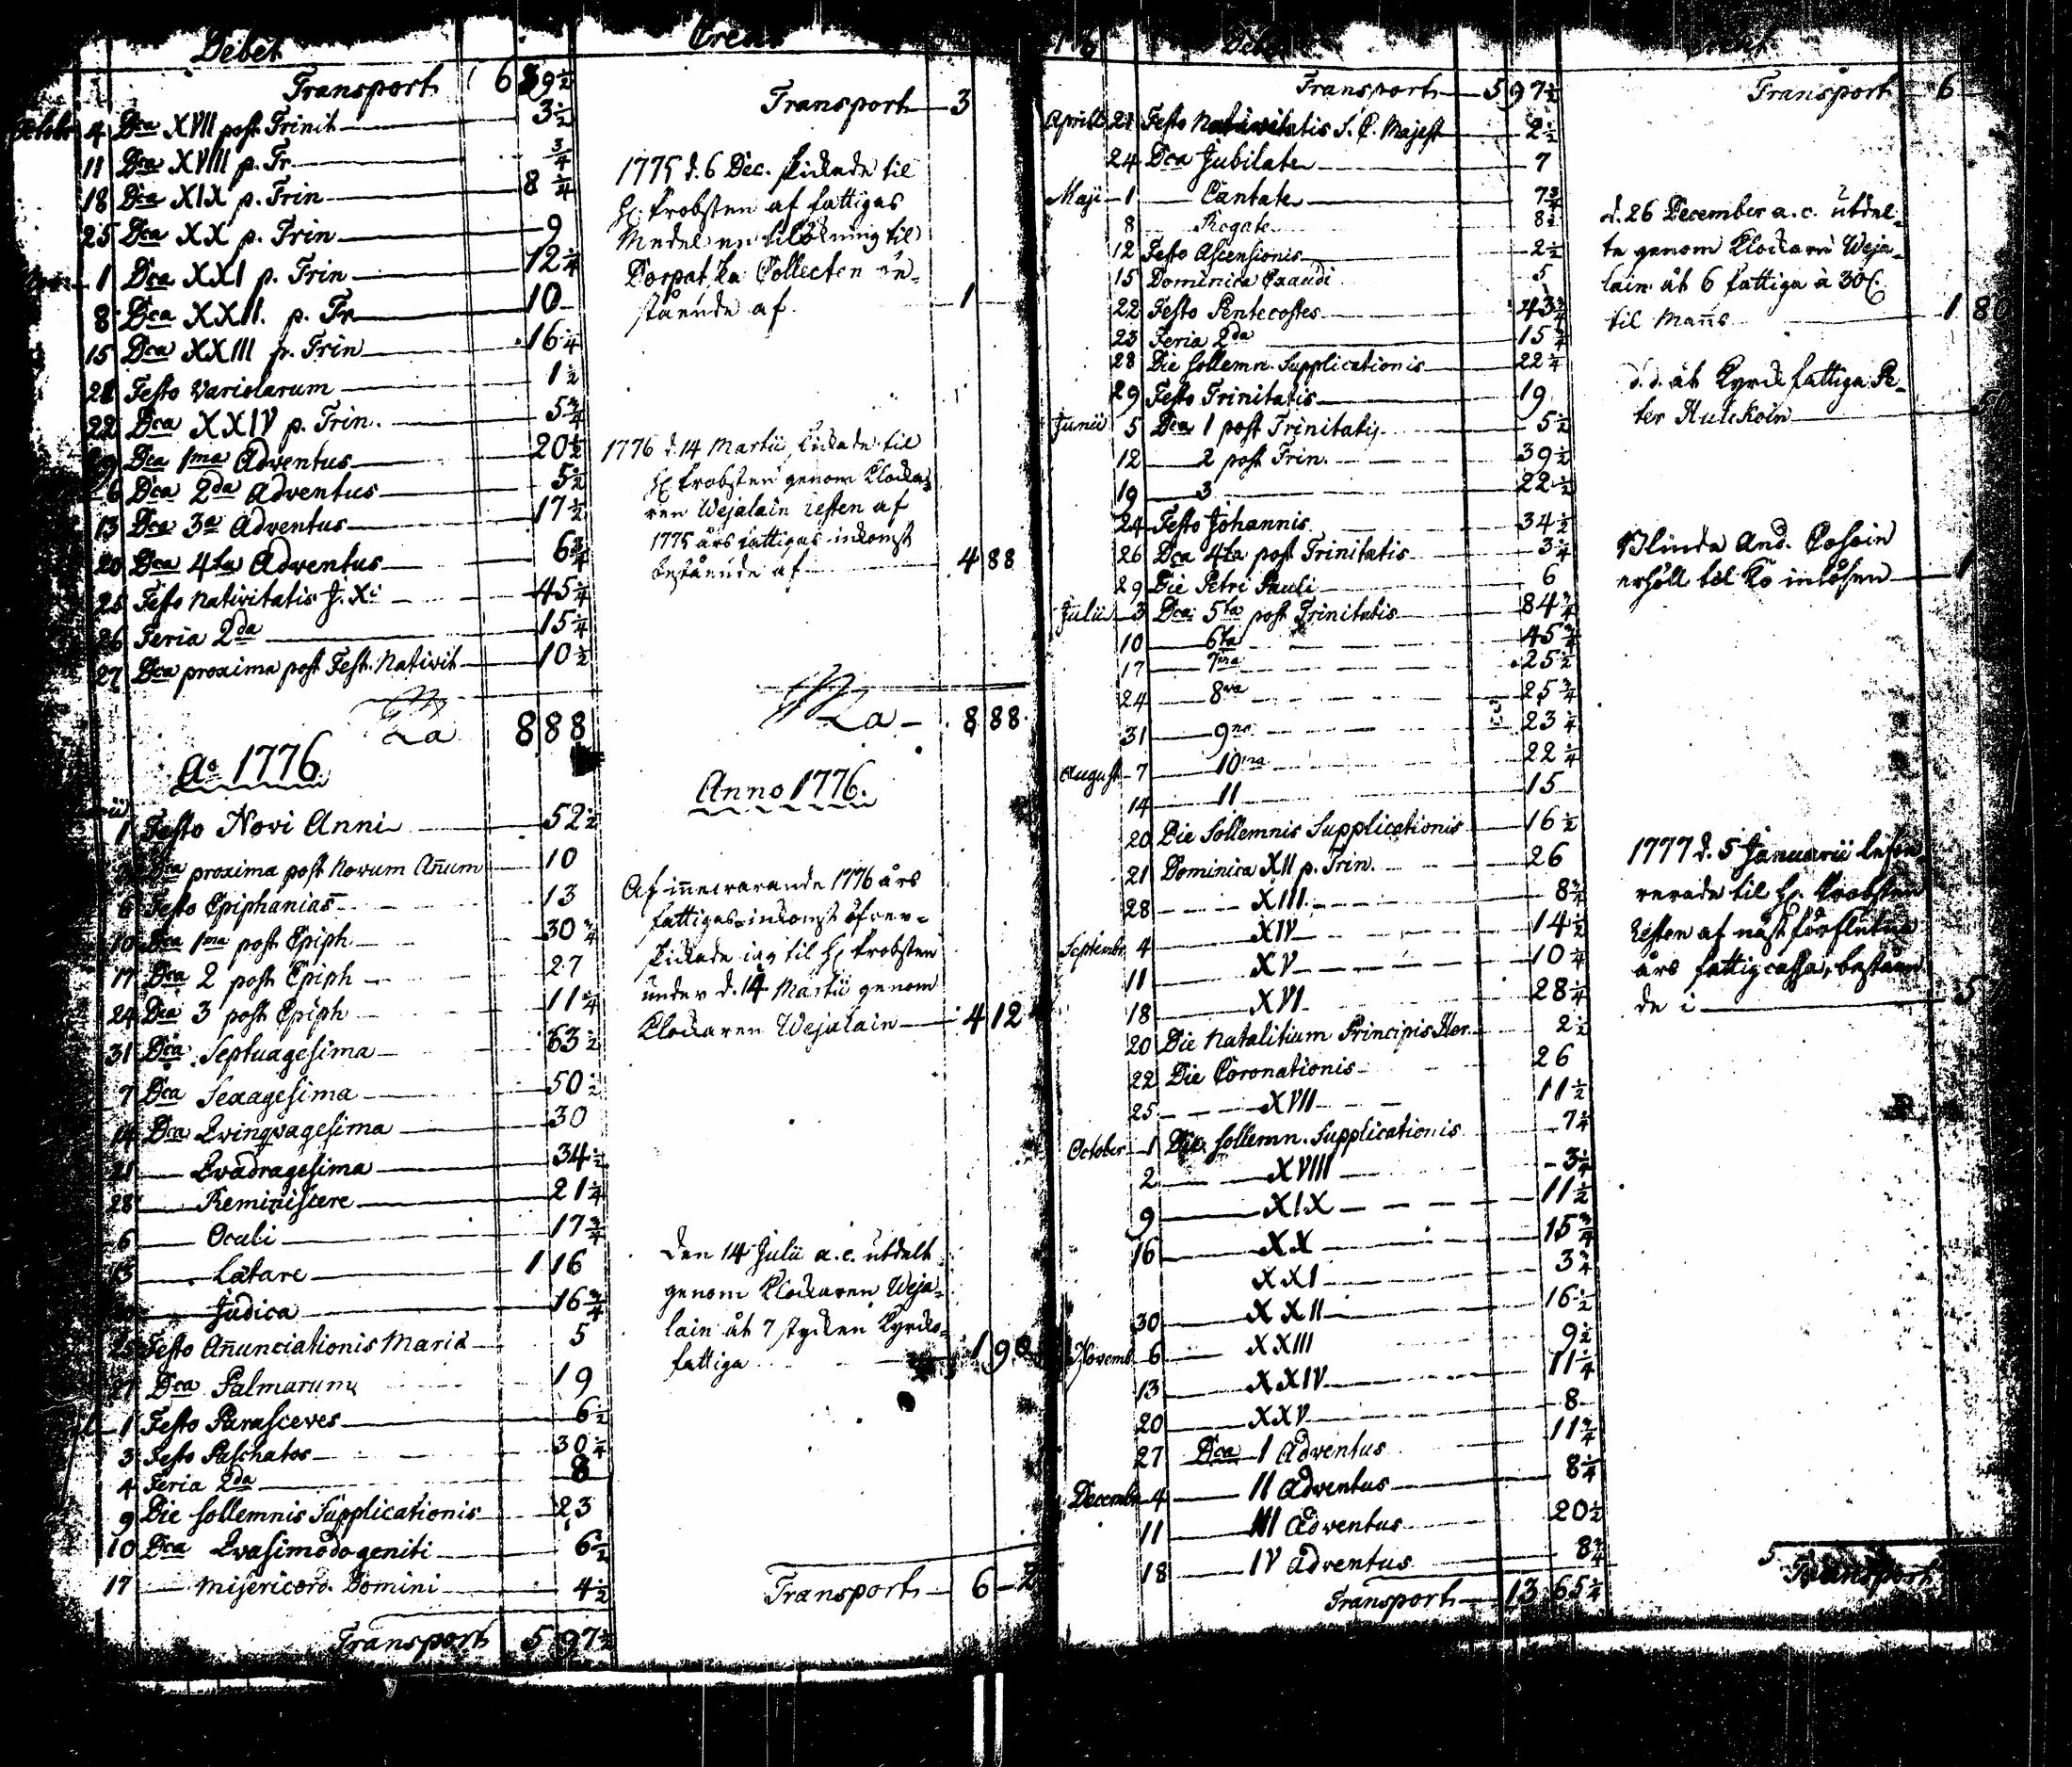 Debet
Transport 6 89½
Octobr 4 Dca XVII post Trinit 3½
11 Dca XVIII p. Tr. ¾
18 Dca XIX p. Trin 8¼
25 Dca XX p. Trin 9
1 Dca XXI p. Trin 12¼
8 Dca XXII. p. Tr 10
15 Dca XXIII p. Trin 16¼
21 Festo Variolarum 1½
22 Dca XXIV p. Trin. 5¾
29 Dca 1ma Adventus 20½
6 Dca 2da Adventus 5½
13 Dca 3a Adventus 17½
20 Dca 4ta Adventus 6¾
25 Festo Nativitatis J. Xi 45¼
26 Feria 2da 15¼
27 Dca proxima post Fest. Nativit 10½
8 88
Ao 1776.
1 Festo Novi Anni 52½
Dca proxima post Novum Añum 10
6 Festo Epiphanias 13
10 Dca 1ma post Epiph. 30¾
17 Dca 2 post Epiph 27
24 Dca 3 post Epiph 11¼
31 Dca Septuagesima 63½
7 Dca Sexagesima 50½
14 Dca Qvinqvagesima 30
21 Qvadragesima 34½
28 Reminiscere 21¼
6 Oculi 17¾
13 Lætare 1 16
Judica 16¾
25 Festo Añunciationis Mariæ 5
27 Dca Palmarum 19
1 Festo Parasceves 6½
3 Festo Paschatos 30¼
4 Feria 2da 8
9 Die sollemnis Supplicationis 23
10 Dca Qvasimodogeniti 6½
17 Misericord. Domini 4½
Transport 5 97½
Transport 3
1775 d. 6 Dec. skickade til
H. Probsten af fattigas
Medel en tilökning til
Dorpatska Collecten
stående af 1
1776 d. 14 Martii skickade til
H. Probsten genom Klocka-
ren Wejalain resten af
1775 års fattigas inkomst
bestående af 4 88
8 88
Anno 1776.
Af innewarande 1776 års
fattigas inkomst öfwer-
skickade jag til H. Probsten
under d. 14 Martii genom
Klockaren Wejalain 4 12
Den 14 Julii a.c. utdelt
genom Klockaren Weja-
lain åt 7 stycken Kyrko-
fattiga 1 90
Transport 6 2
Transport 5 97½
Aprill 21 Festo Nativitatis S. C. Majest 2½
24 Dca Jubilate 7
Maji 1 Cantate 7¾
8 Rogate 8½
12 Festo Ascensionis 2½
15 Dominica Exaudi 5
22 Festo Pentecostes 43¾
23 Feria 2da 15¼
28 Die sollemn. Supplicationis 22¼
29 Festo Trinitatis 19
Junii 5 Dca 1 post Trinitatis 5½
12 2 post Trin. 39½
19 3 22½
24 Festo Johannis 34½
26 Dca 4ta post Trinitatis 3¼
29 Die Petri Pauli 6
Julii 3 Dca 5ta post Trinitatis 84¾
10 6ta 45¾
17 7ma 25½
24 8va 25¾
31 9na 23¼
August 7 10ma 22¼
14 11 15
20 Die Sollemnis Supplicationis 16½
21 Dominica XII p. Trin. 26
28 XIII 8¾
Septembr. 4 XIV 14½
11 XV 10¼
18 XVI 28¼
20 Die Natalitium Principis Her. 2½
22 Die Coronationis 26
25 XVII 11½
October 1 Die sollemn. Supplicationis 7¼
2 XVIII 3¼
9 XIX 11½
16 XX 15¾
XXI 3¾
30 XXII 16½
Novemb. 6 XXIII 9½
13 XXIV 11¼
20 XXV 8
27 Dca 1 Adventus 11¾
Decembr 4 II Adventus 8¼
11 III Adventus 20½
18 IV Adventus 8¾
Transport 13 65¼
Transport 6
d. 26 December a. c. utdel-
te genom Klockaren Weja-
lain åt 6 fattiga à 30 C.
til Mañs 1 80
d. d. åt Kyrckfattiga Pe-
ter
Blinda And.
erhöll til Ko inlösen 1
1777 d. 5 Januarii
rerade til H. Probsten
resten af näst förflutne
års fattigcassa, beståen-
de i 5
Transport